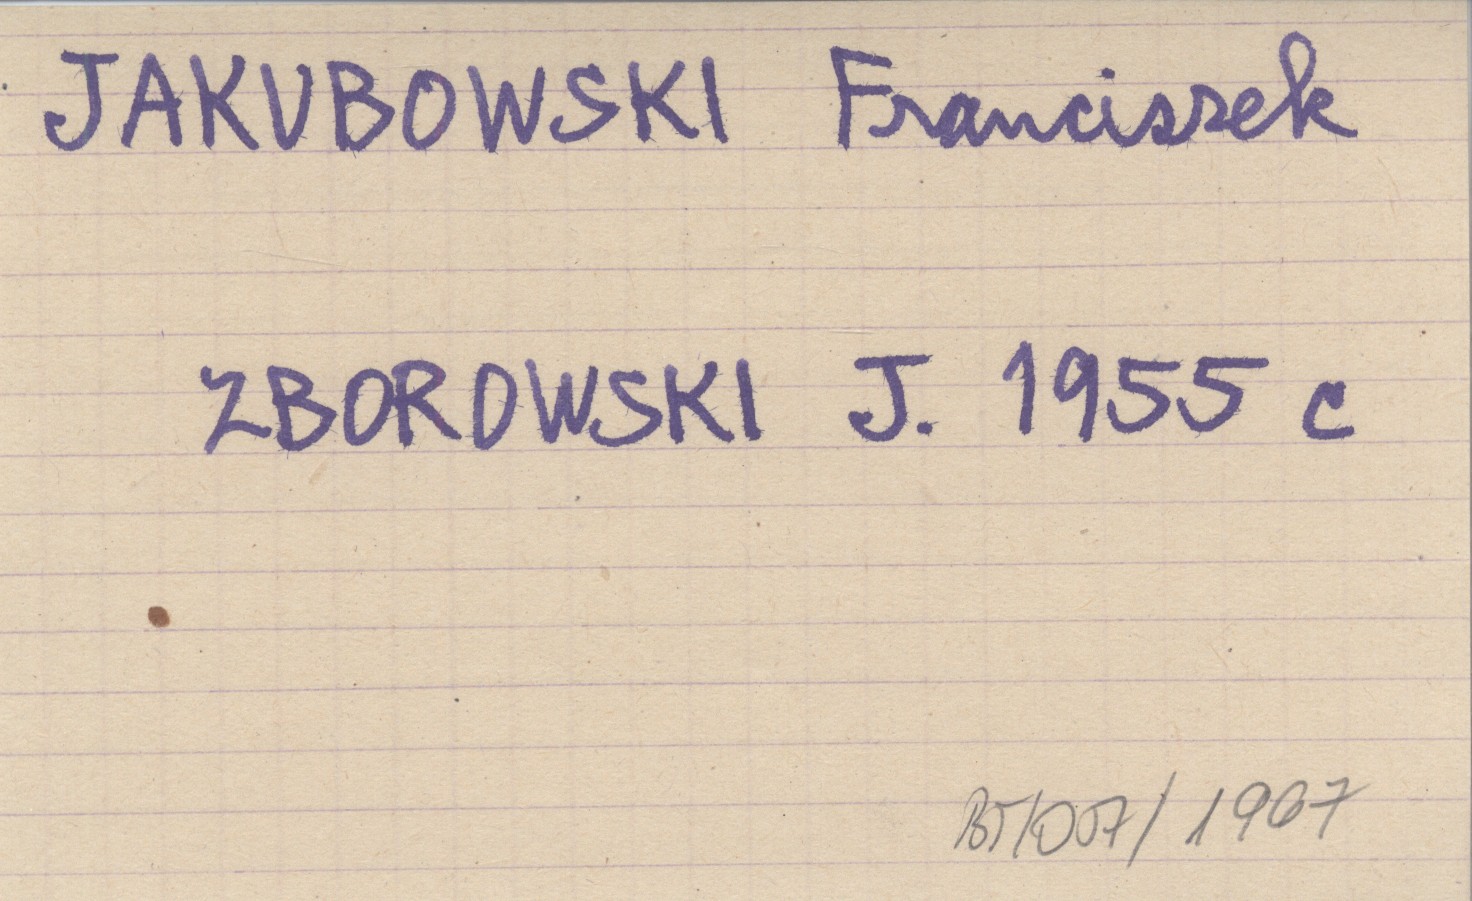 JAKUBOWSKI Franciszek
ZBOROWSKI J. 1955 c
1967